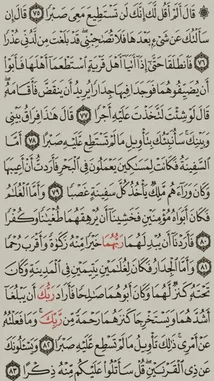 ۞ قَالَ أَلَمْ أَقُل لَّكَ إِنَّكَ لَن تَسْتَطِيعَ مَعِىَ صَبْرًا ٧٥ قَالَ إِن
سَأَلْتُكَ عَن شَىْءٍۭ بَعْدَهَا فَلَا تُصَـٰحِبْنِى ۖ قَدْ بَلَغْتَ مِن لَّدُنِّى عُذْرًا
٧٦ فَٱنطَلَقَا حَتَّىٰٓ إِذَآ أَتَيَآ أَهْلَ قَرْيَةٍ ٱسْتَطْعَمَآ أَهْلَهَا فَأَبَوْا۟
أَن يُضَيِّفُوهُمَا فَوَجَدَا فِيهَا جِدَارًا يُرِيدُ أَن يَنقَضَّ فَأَقَامَهُۥ ۖ
قَالَ لَوْ شِئْتَ لَتَّخَذْتَ عَلَيْهِ أَجْرًا ٧٧ قَالَ هَـٰذَا فِرَاقُ بَيْنِى
وَبَيْنِكَ ۚ سَأُنَبِّئُكَ بِتَأْوِيلِ مَا لَمْ تَسْتَطِع عَّلَيْهِ صَبْرًا ٧٨ أَمَّا
ٱلسَّفِينَةُ فَكَانَتْ لِمَسَـٰكِينَ يَعْمَلُونَ فِى ٱلْبَحْرِ فَأَرَدتُّ أَنْ أَعِيبَهَا
وَكَانَ وَرَآءَهُم مَّلِكٌ يَأْخُذُ كُلَّ سَفِينَةٍ غَصْبًا ٧٩ وَأَمَّا ٱلْغُلَـٰمُ
فَكَانَ أَبَوَاهُ مُؤْمِنَيْنِ فَخَشِينَآ أَن يُرْهِقَهُمَا طُغْيَـٰنًا وَكُفْرًا
٨٠ فَأَرَدْنَآ أَن يُبْدِلَهُمَا رَبُّهُمَا خَيْرًا مِّنْهُ زَكَوٰةً وَأَقْرَبَ رُحْمًا
٨١ وَأَمَّا ٱلْجِدَارُ فَكَانَ لِغُلَـٰمَيْنِ يَتِيمَيْنِ فِى ٱلْمَدِينَةِ وَكَانَ
تَحْتَهُۥ كَنزٌ لَّهُمَا وَكَانَ أَبُوهُمَا صَـٰلِحًا فَأَرَادَ رَبُّكَ أَن يَبْلُغَآ
أَشُدَّهُمَا وَيَسْتَخْرِجَا كَنزَهُمَا رَحْمَةً مِّن رَّبِّكَ ۚ وَمَا فَعَلْتُهُۥ
عَنْ أَمْرِى ۚ ذَٰلِكَ تَأْوِيلُ مَا لَمْ تَسْطِع عَّلَيْهِ صَبْرًا ٨٢ وَيَسْـَٔلُونَكَ
عَن ذِى ٱلْقَرْنَيْنِ ۖ قُلْ سَأَتْلُوا۟ عَلَيْكُم مِّنْهُ ذِكْرًا ٨٣